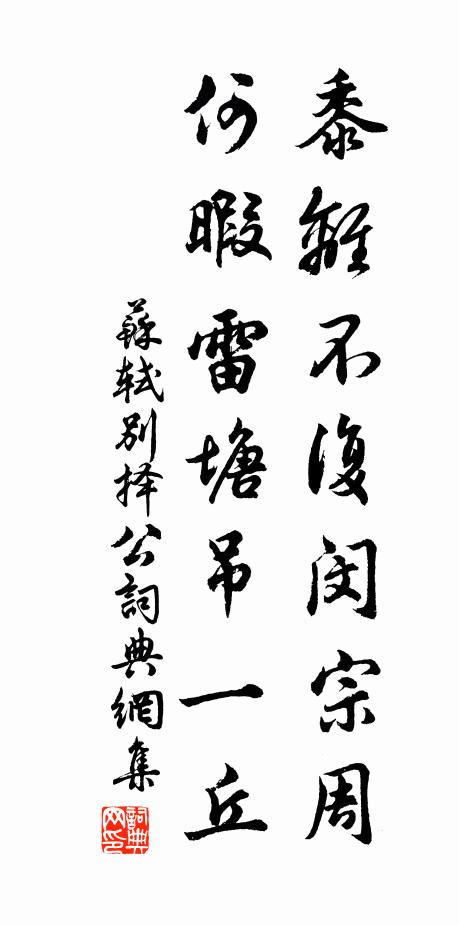 黍離不復閔宗周
何暇雷塘吊一丘
蘇轼别择公詞典網集
詞典網印